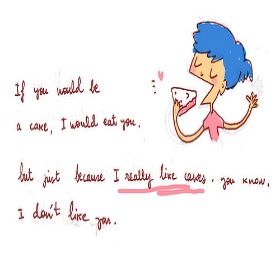 If you would be
a cake, I would eat you.
but just because I really like cakes. you know.
I don't like you.